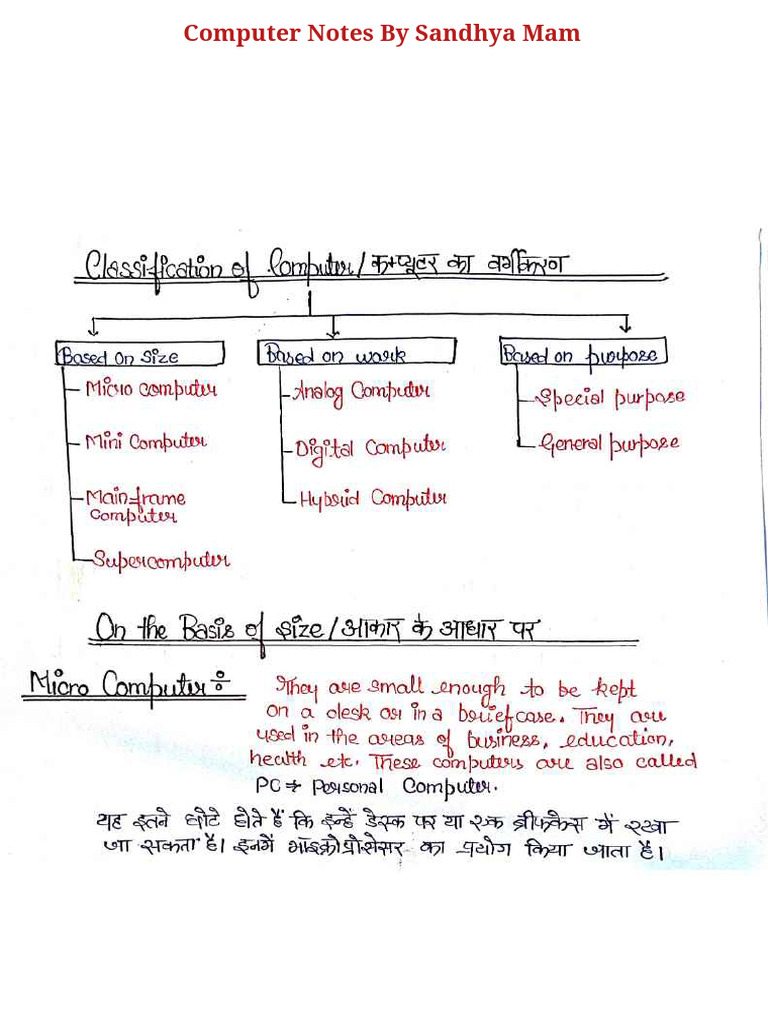 Computer Notes By Sandhya Mam
Classification of Computer/कम्प्यूटर का वर्गीकरण
Based on Size
Based on work
Based on purpose
Micro computer
Mini Computer
Mainframe
Computer
Supercomputer
Analog Computer
Digital Computer
Hybrid Computer
Special purpose
General purpose
On the Basis of size/आकार के आधार पर
Micro Computer:
They are small enough to be kept
on a desk or in a briefcase. They are
used in the areas of business, education,
health etc. These computers are also called
PC → Personal Computer.
यह इतने छोटे होते हैं कि इन्हें डेस्क पर या एक ब्रीफकेस में रखा
जा सकता है। इनमें माँइक्रोप्रोसेसर का प्रयोग किया जाता है।